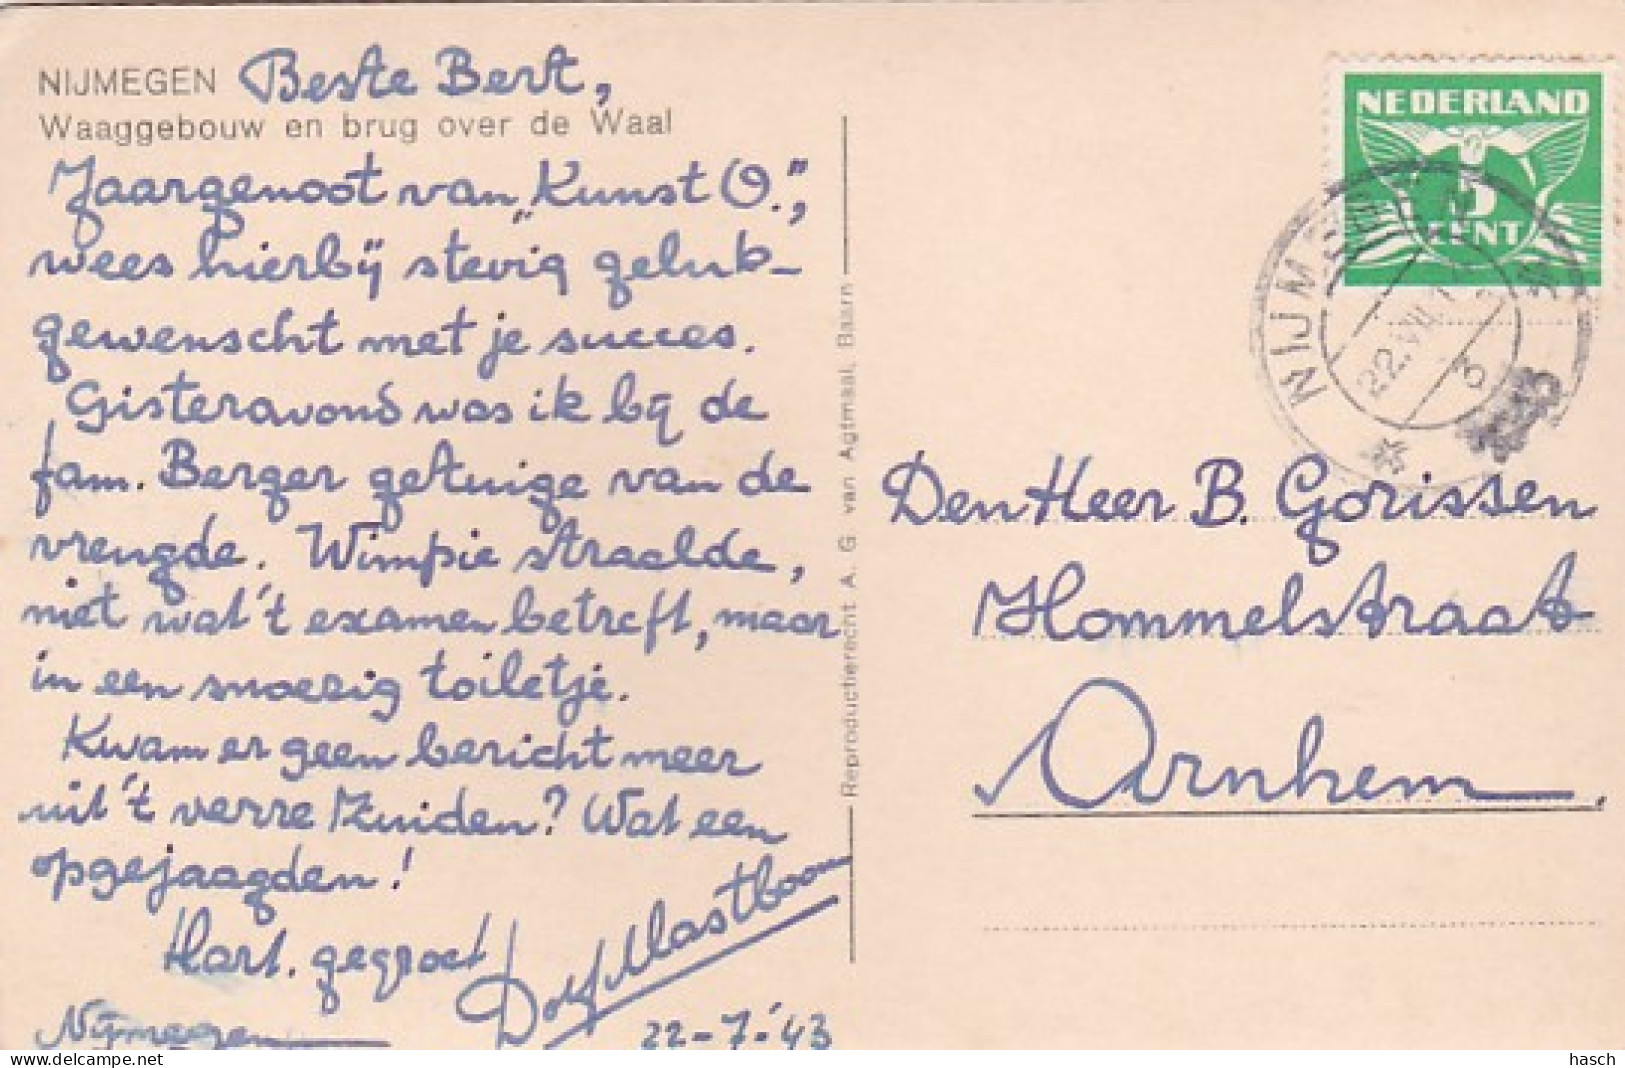 NIJMEGEN Beste Bert,
Waaggebouw en brug over de Waal
Jaargenoot van „Kunst O.",
wees hierbij stevig geluk-
gewenscht met je succes.
Gisteravond was ik bij de
fam. Berger getuige van de
vreugde. Wimpie straalde,
niet wat 't examen betreft, maar
in een snoezig toiletje.
Kwam er geen bericht meer
uit 't verre Zuiden? Wat een
opgejaagden!
Hart. gegroet
Dolf Mastboom
Nijmegen 22-7-'43
Reproductierecht A. G. van Agtmaal, Baarn
NEDERLAND
5
CENT
NIJM
22.VII
3
Den Heer B. Gorissen
Hommelstraat
Arnhem.
hasch